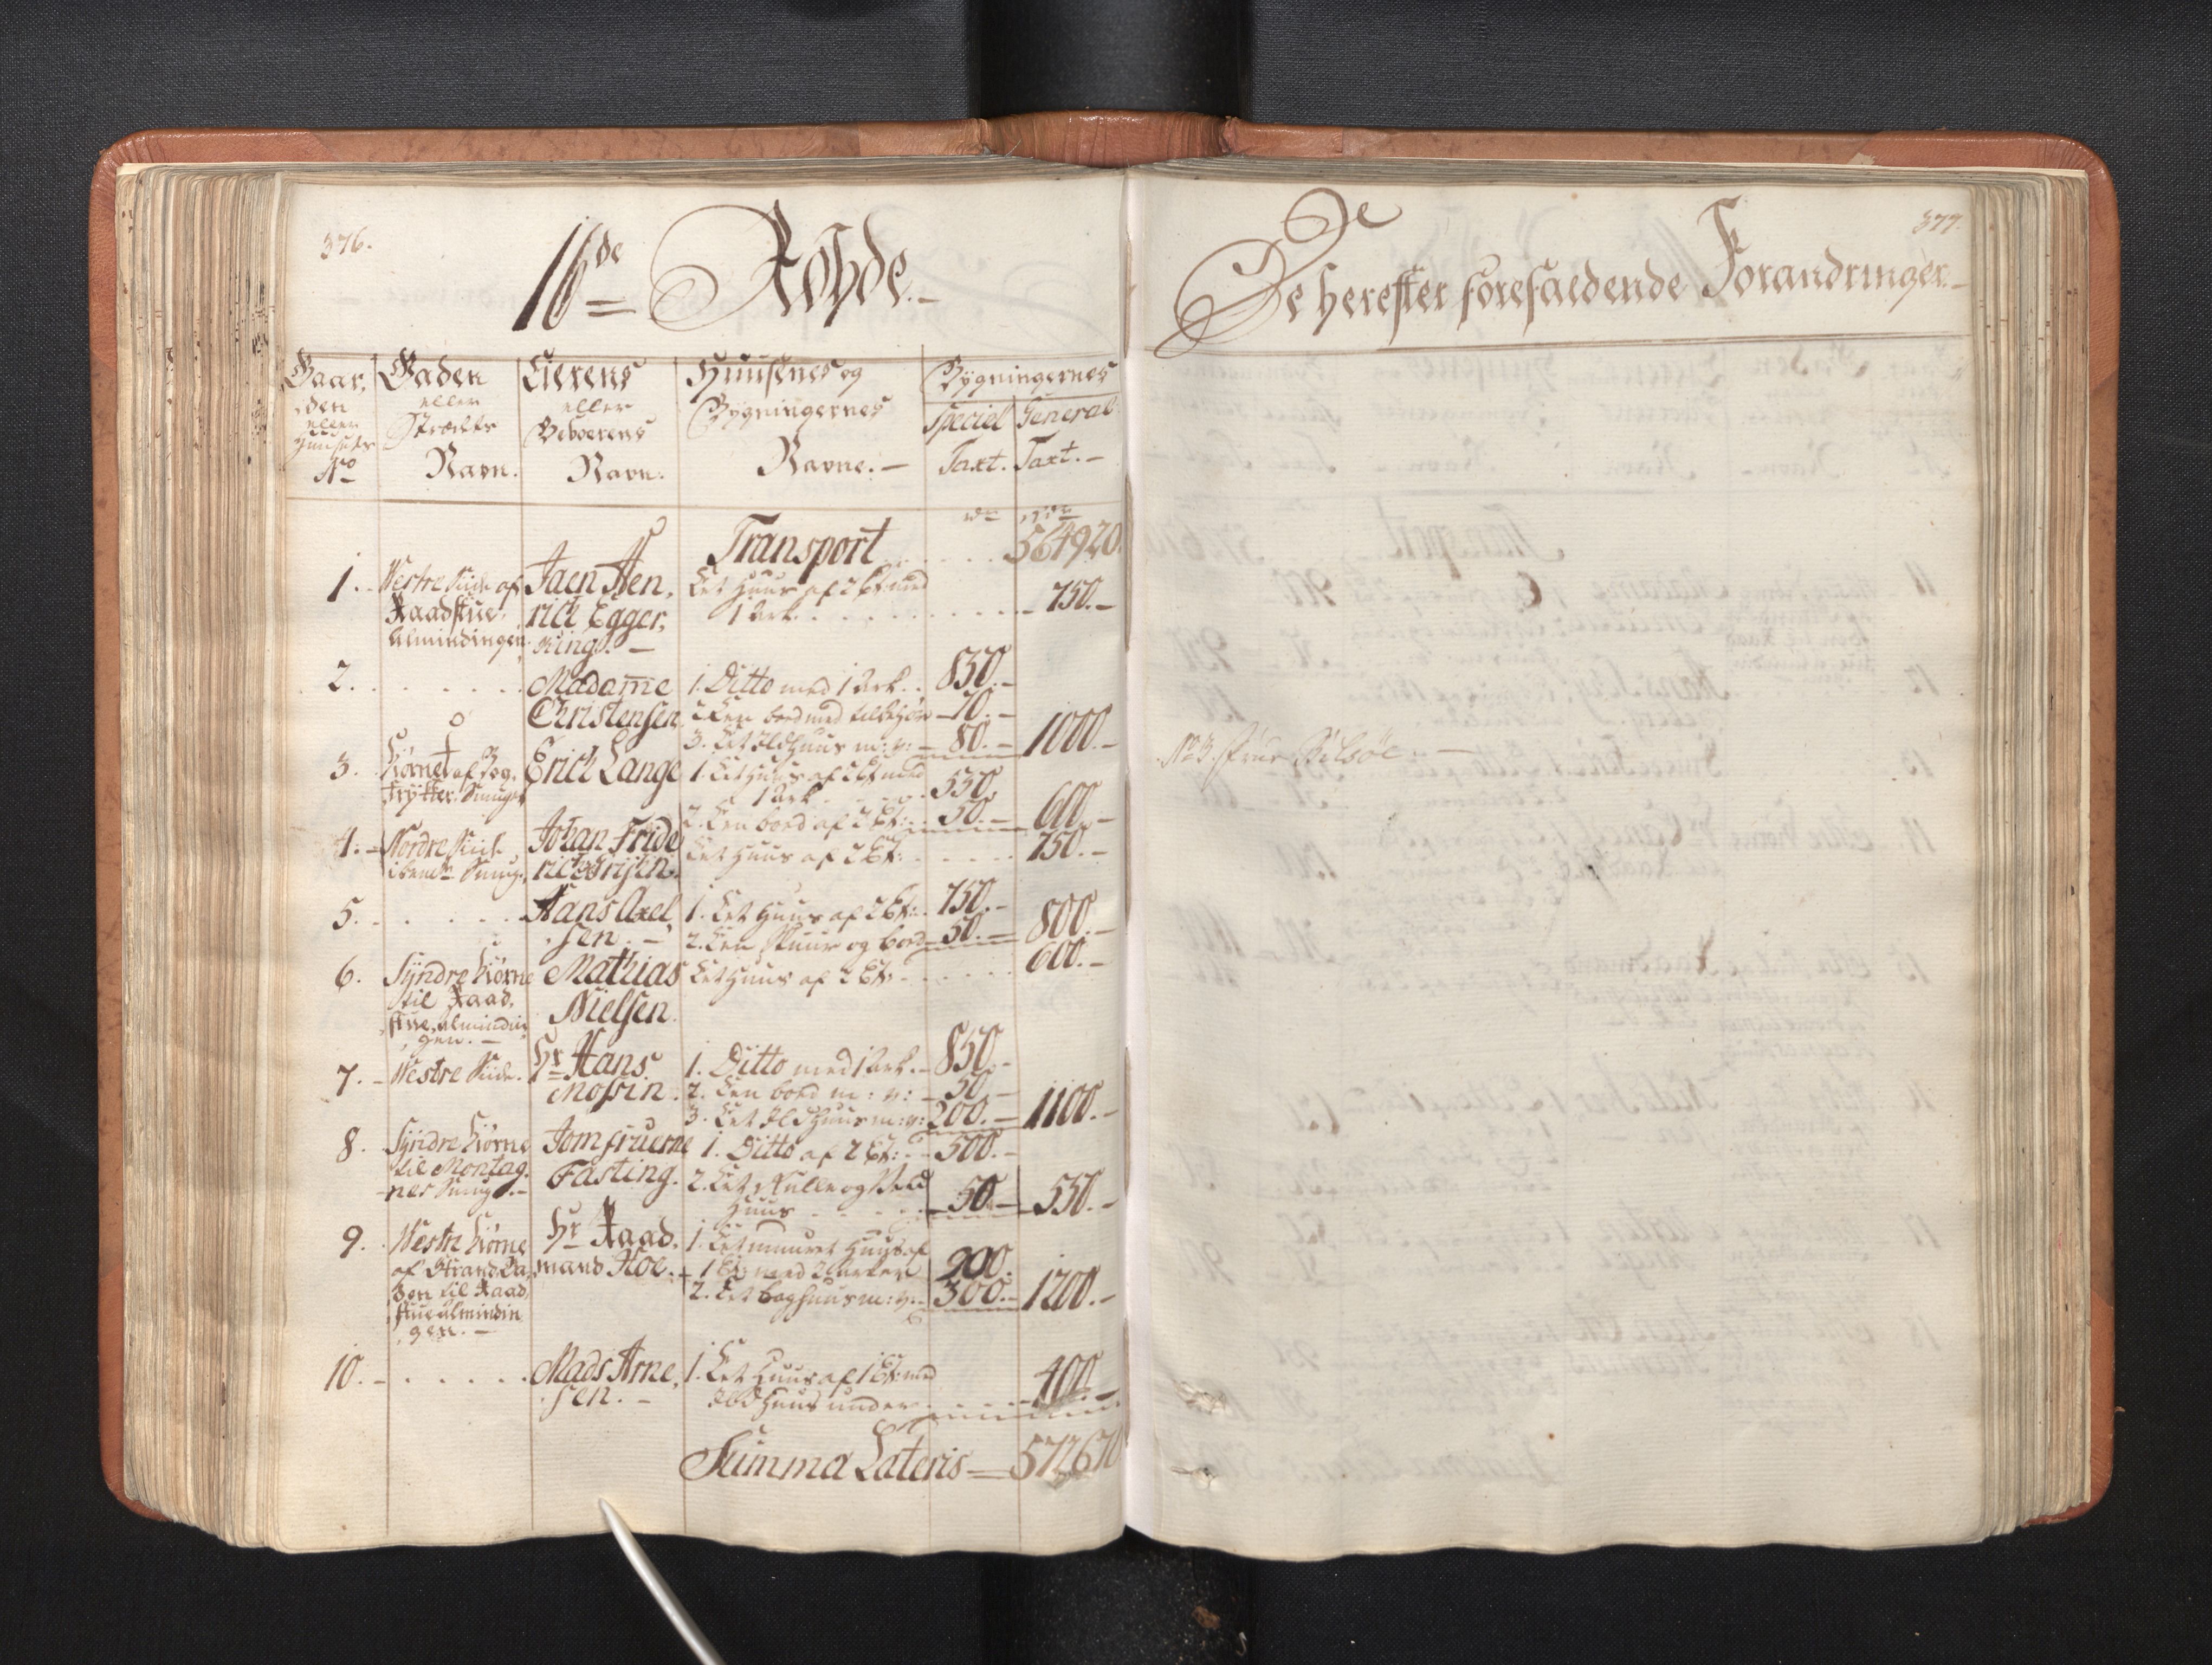 376.
16de Rohde.
Gaar,
den
eller
Huusets
No
Gaden
eller
Strædets
Navn.
Eierens
eller
Beboerens
Navn.
Huusenes og
Bygningernes
Navne.
Bygningernes
Speciel General
Taxt. Taxt.
Transport 564920.
1. Westre Side af
Raadstue,
Almindingen.
Jaen Hen,
rich Egger,
king.
Eet Huus af 2 Et: med
1 Ark. 750.
2. Madame
Christensen.
1. Ditto med 1 Ark. 850.
2. Een boed med tilbehør 70.
3. Et Ildhuus m: v: 80. 1000.
3. Hiørnet af Bog,
trÿkker Smuget
Erich Lange
1. Eet Huus af 2 Et med
1 Ark. 550.
2. Een boed af 2 Et: 50. 600.
4. Nordre Side
i bemte Smug.
Johan Fride
rich
Eet Huus af 2 Et: 750.
5. Hans Axel,
sen.
1. Eet Huus af 2 Et: 750.
2. Een Skuur og boed 50. 800.
6. Sÿndre Hiørne
til Raad,
stue, almindin,
gen.
Mathias
Nielsen.
Eet Huus af 2 Et: 600.
7. Westre Side.
Hr Hans
Mossin.
1. Ditto med 1 Ark. 850.
2. Een boed m: v: 50.
3. Eet Ildhuus m: v: 200. 1100.
8. Sÿndre Hiørne
til Montag,
nes Smug.
Jomfruerne
Fasting.
1. Ditto af 2 Et: 500.
2. Eet Rulle og Ved
Huus 50. 550.
9. Westre Hiørne
af Strand Ga,
den til Raad,
stue Almindin
gen.
Hr Raad,
mand Hoe.
1. Eet muuret Huus af
1 Et: med 2 Arker 900.
2. Eet baghuus m: v: 300. 1200.
10. Mads Arne,
sen.
1. Eet Huus af 1 Et: med
Ildhuus under 400.
Summa Lateris 572670
377.
De
De herefter forefaldende Forandringer.
No 3. Frue Bilsøe.